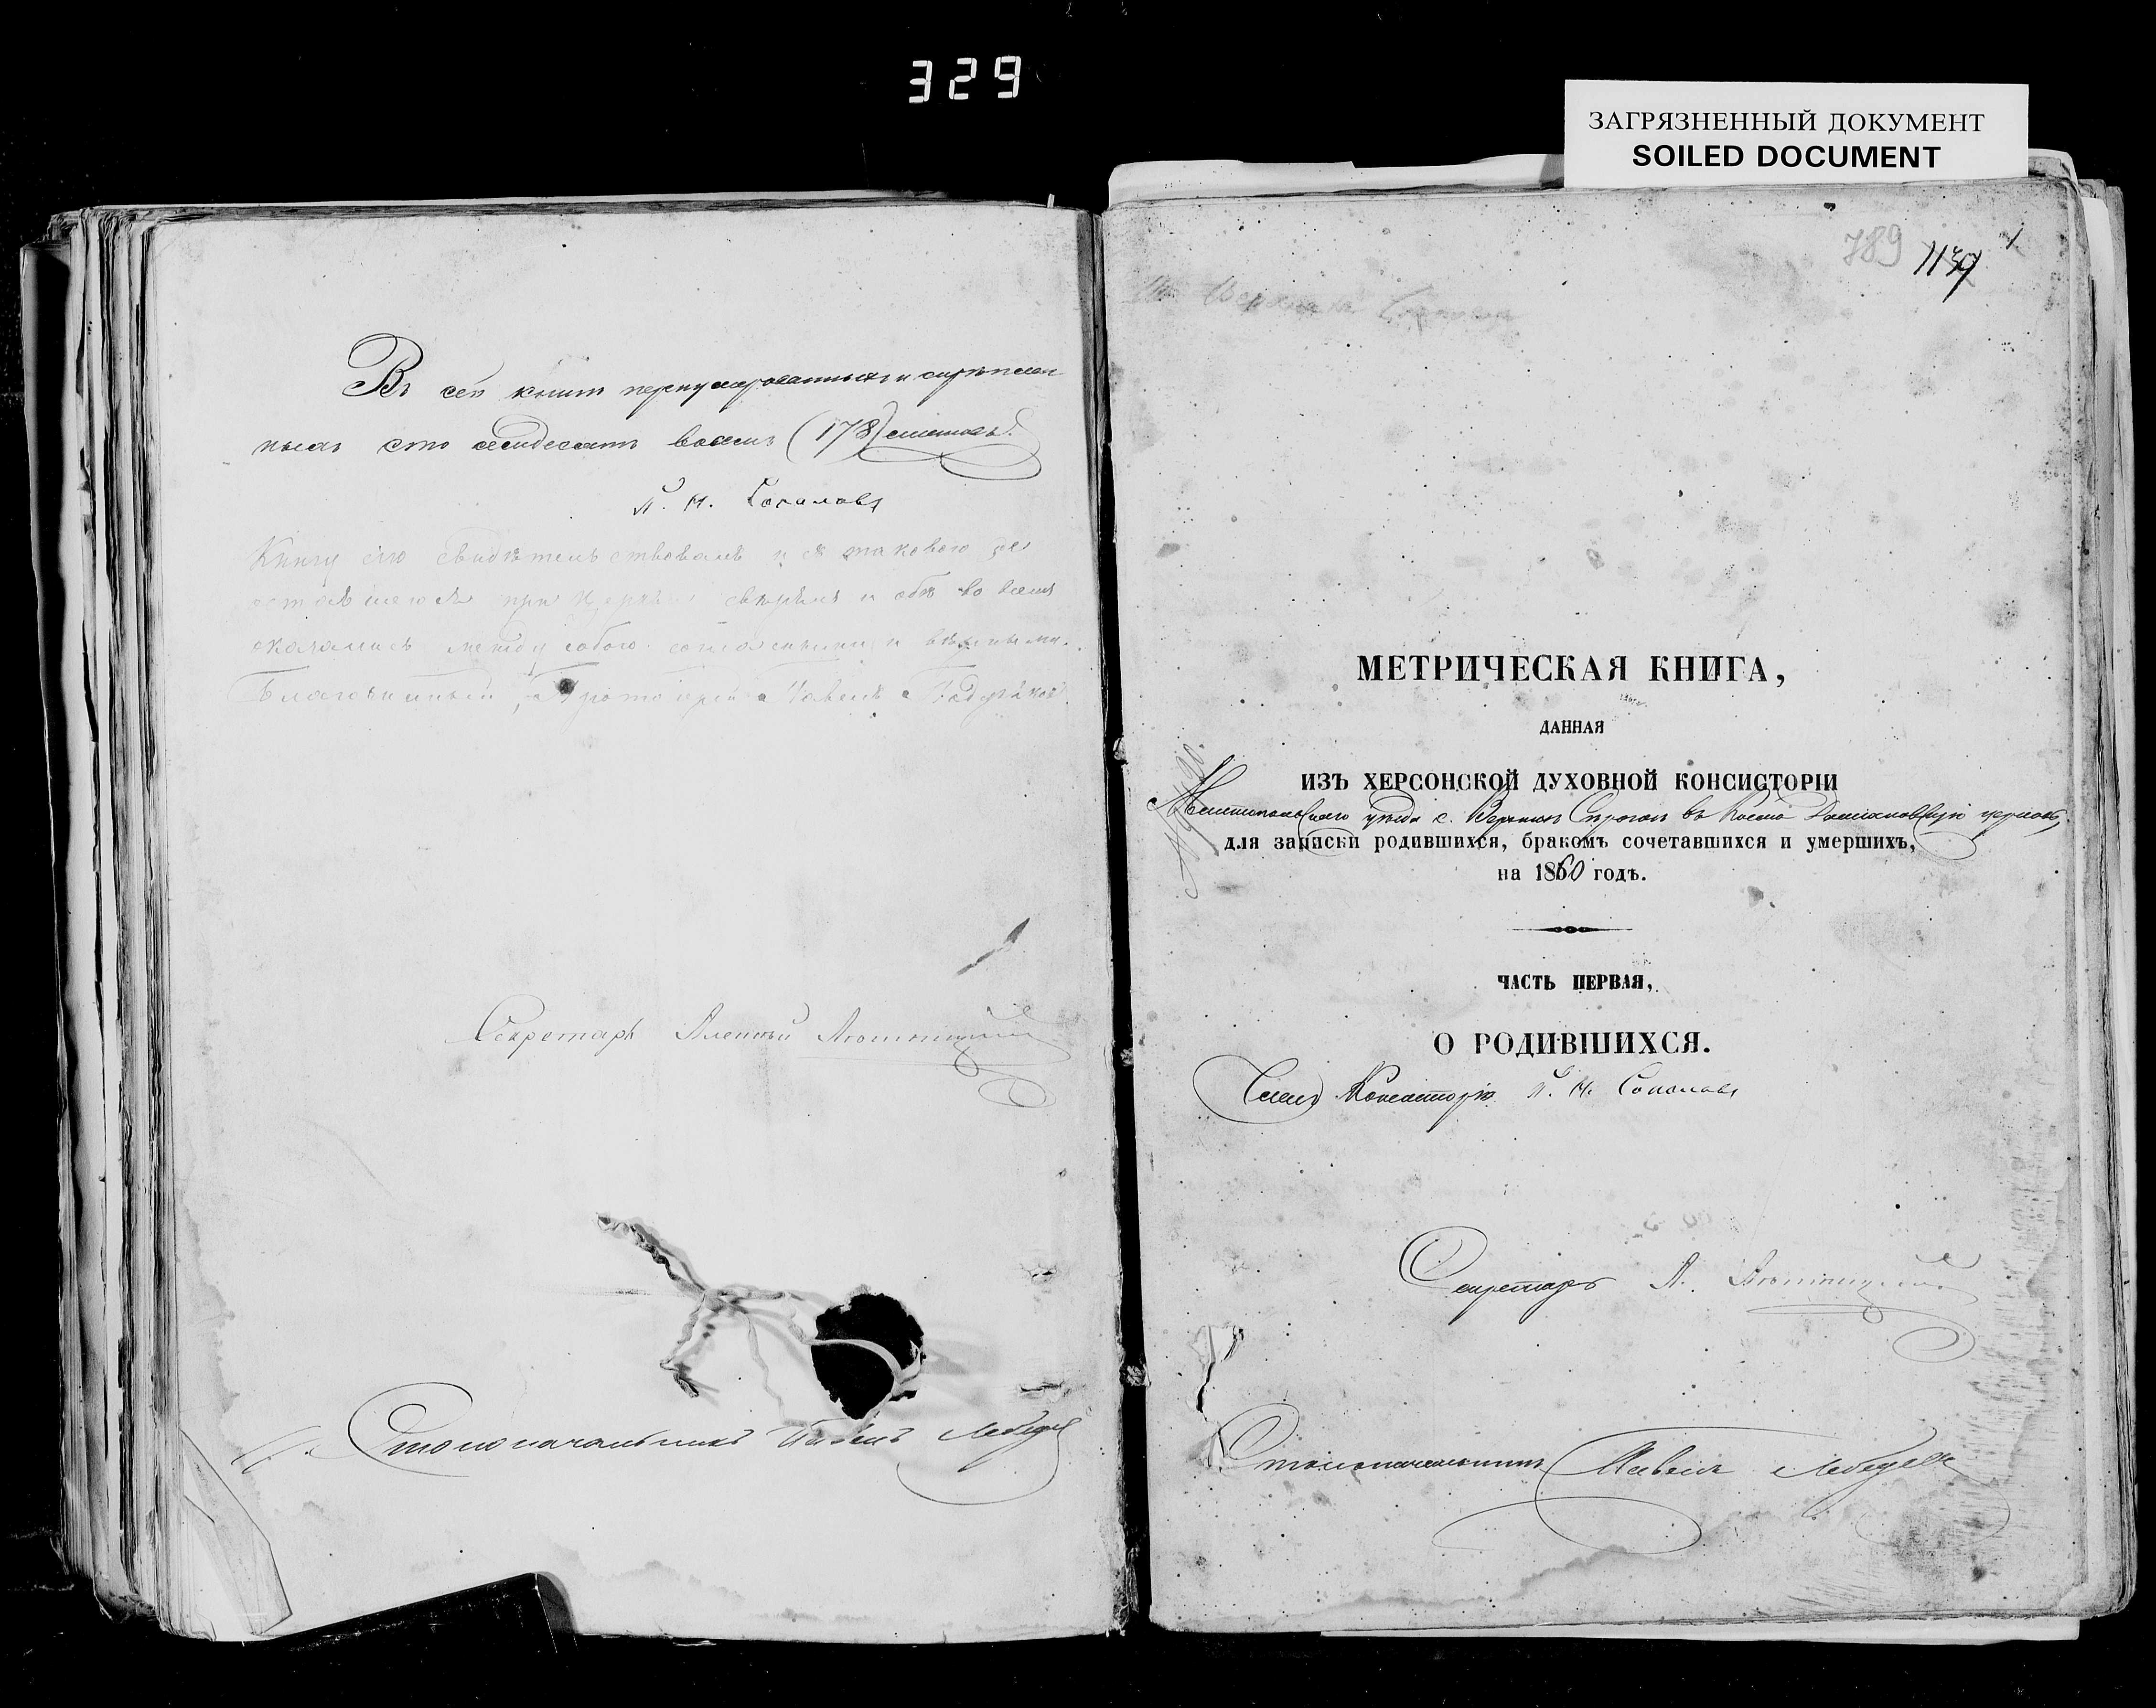 329
ЗАГРЯЗНЕННЫЙ ДОКУМЕНТ
SOILED DOCUMENT
Въ сей книгѣ перенумерованныхъ и скрѣплен
ныхъ сто семдесятъ восемь (178) листовъ.
П. И. Соколовъ
Книгу сію свидѣтельствовалъ и съ таковою же
оставшеюся при Церкви свѣрялъ и обѣ во всемъ
оказались между собою согласными и вѣрными.
Благочинный, Протоіерей Павелъ
Секретарь Алексѣй
Столоначальникъ Павелъ Лебедев
789 1139 1
МЕТРИЧЕСКАЯ КНИГА,
ДАННАЯ
ИЗЪ ХЕРСОНСКОЙ ДУХОВНОЙ КОНСИСТОРІИ
Мелитопольскаго уѣзда с. Верхнихъ Сирогоз въ Космо Даміановскую церковь
для записки родившихся, бракомъ сочетавшихся и умершихъ,
на 1860 годъ.
ЧАСТЬ ПЕРВАЯ,
О РОДИВШИХСЯ.
Членъ Консисторіи П. И. Соколовъ
Секретарь А.
Столоначальникъ Павелъ Лебедев